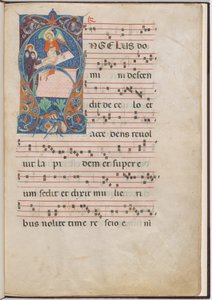 NGELUS do
mi ni descen
dit de ce lo et
acce dens revol
uit la pi dem et super e
um sedit et dixit mu lie ri
bus nolite time re scio e ni